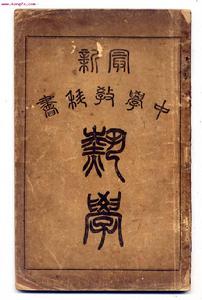 www.kongfz.com
最新
中學教科書
熱學